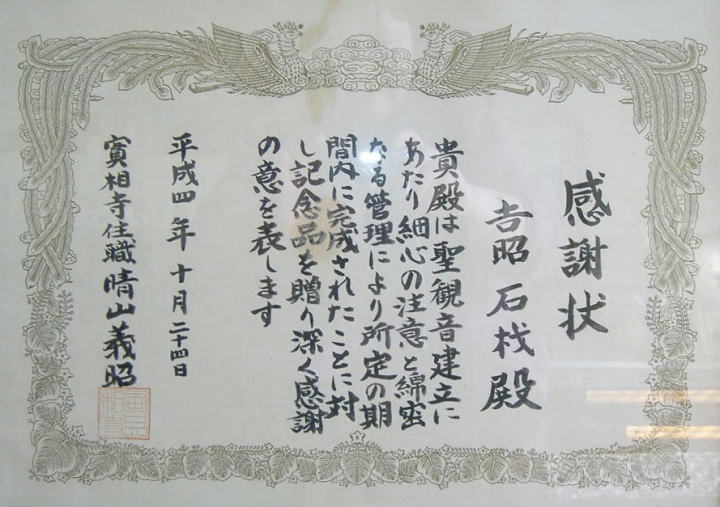 感謝状
吉昭石材殿
貴殿は聖観音建立に
あたり細心の注意と綿密
なる管理により所定の期
間内に完成されたことに対
し記念品を贈り深く感謝
の意を表します
平成四年十月二十四日
實相寺住職晴山義昭